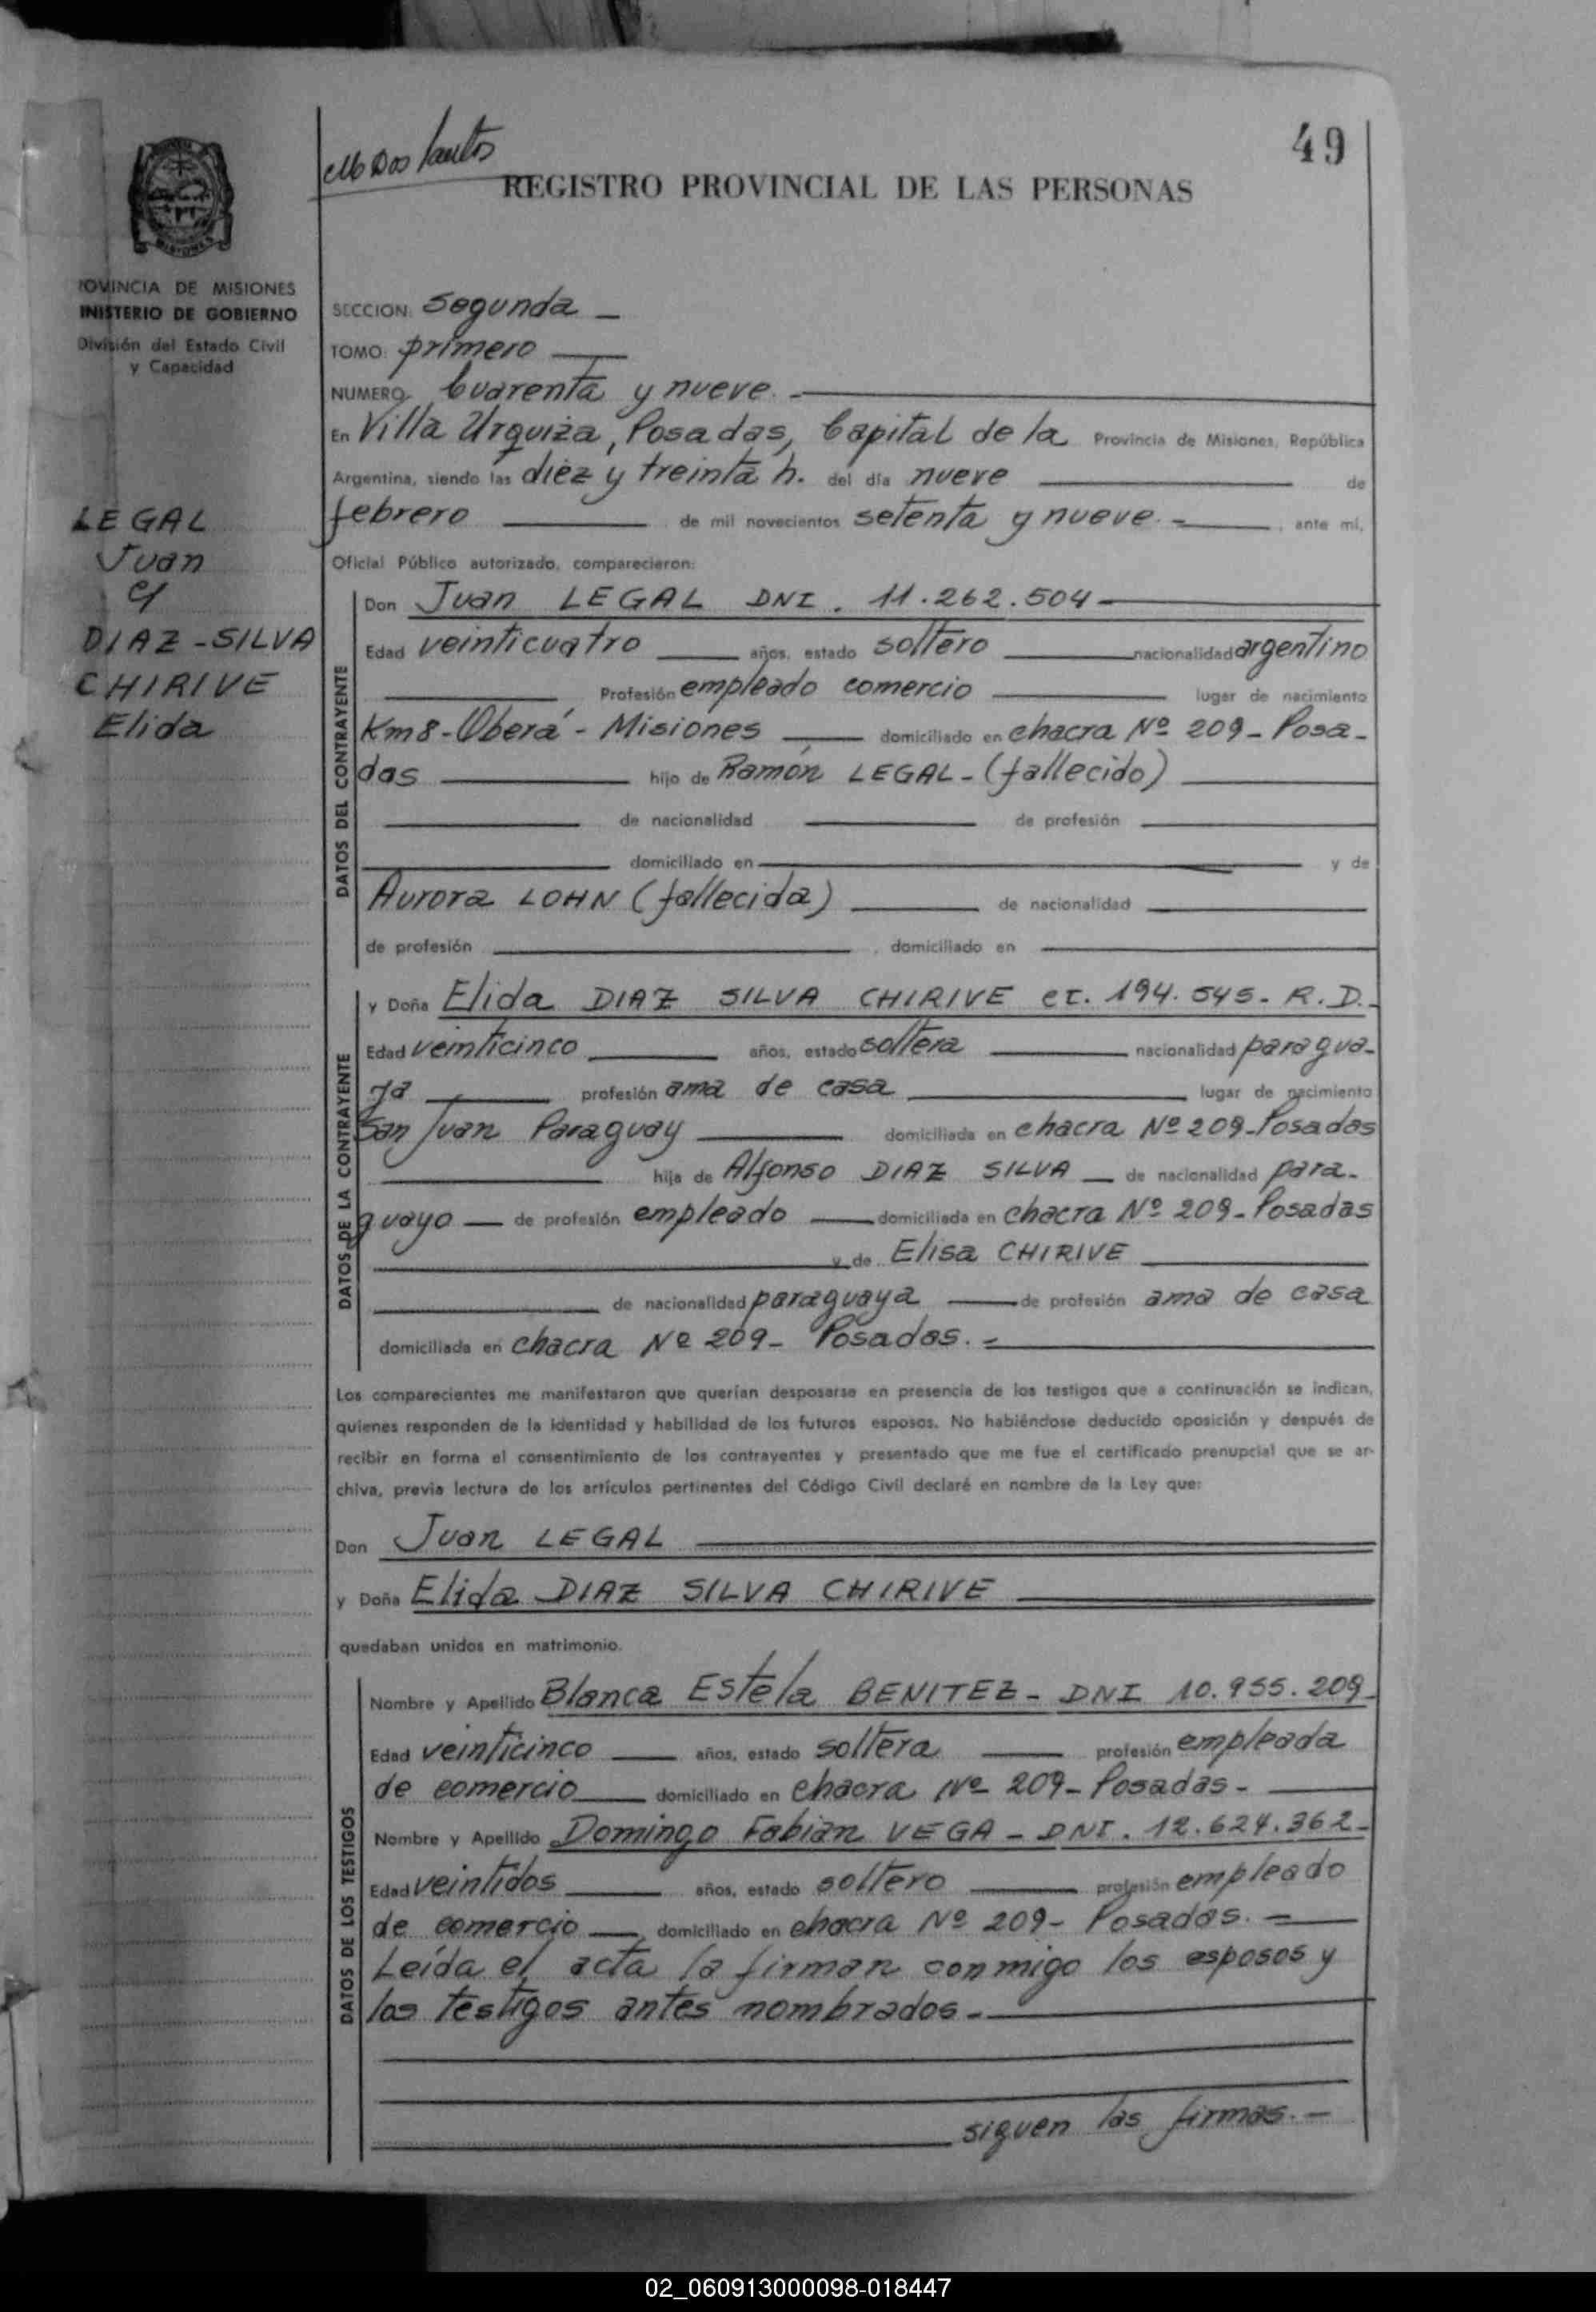 49
Dos Santos
REGISTRO PROVINCIAL DE LAS PERSONAS
MISIONES
OVINCIA DE MISIONES
INISTERIO DE GOBIERNO
División del Estado Civil
y Capacidad
LEGAL
Juan
c/
DIAZ-SILVA
CHIRIVE
Elida
SECCION: Segunda
TOMO: primero
NUMERO Cuarenta y nueve.-
En Villa Urquiza, Posadas, Capital de la Provincia de Misiones, República
Argentina, siendo las diez y treinta h. del día nueve de
febrero de mil novecientos setenta y nueve.- , ante mí,
Oficial Público autorizado, comparecieron:
DATOS DEL CONTRAYENTE
Don Juan LEGAL DNI. 11.262.504-
Edad veinticuatro años, estado soltero nacionalidad argentino
Profesión empleado comercio lugar de nacimiento
Km8-Oberá-Misiones domiciliado en chacra Nº 209-Posa-
das hijo de Ramón LEGAL-(fallecido)
de nacionalidad de profesión
domiciliado en y de
Aurora LOHN (fallecida) de nacionalidad
de profesión , domiciliado en
DATOS DE LA CONTRAYENTE
y Doña Elida DIAZ SILVA CHIRIVE CI. 194.545-R.D.-
Edad veinticinco años, estado soltera nacionalidad paragua-
ya profesión ama de casa lugar de nacimiento
San Juan Paraguay domiciliada en chacra Nº 209-Posadas
hija de Alfonso DIAZ SILVA de nacionalidad para-
guayo de profesión empleado domiciliado en chacra Nº 209-Posadas
y de Elisa CHIRIVE
de nacionalidad paraguaya de profesión ama de casa
domiciliada en chacra Nº 209- Posadas.-
Los comparecientes me manifestaron que querían desposarse en presencia de los testigos que a continuación se indican,
quienes responden de la identidad y habilidad de los futuros esposos. No habiéndose deducido oposición y después de
recibir en forma el consentimiento de los contrayentes y presentado que me fue el certificado prenupcial que se ar-
chiva, previa lectura de los artículos pertinentes del Código Civil declaré en nombre de la Ley que:
Don Juan LEGAL
y Doña Elida DIAZ SILVA CHIRIVE
quedaban unidos en matrimonio.
DATOS DE LOS TESTIGOS
Nombre y Apellido Blanca Estela BENITEZ- DNI 10.955.209
Edad veinticinco años, estado soltera profesión empleada
de comercio domiciliado en chacra Nº 209-Posadas-
Nombre y Apellido Domingo Fabian VEGA - DNI. 12.624.362-
Edad veintidos años, estado soltero profesión empleado
de comercio domiciliado en chacra Nº 209- Posadas.-
Leída el acta la firman conmigo los esposos y
los testigos antes nombrados.-
siguen las firmas.-
02_060913000098-018447